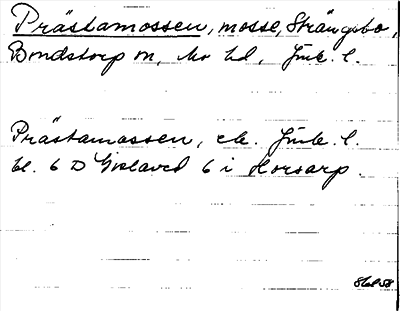 Prästamossen, mosse, Strängsbo,
Bondstorp sn, Mo hd, Jönk. l.
Prästamossen, ek. Jönk. l.
bl. 6 D Gislaved 6 i Horsarp.